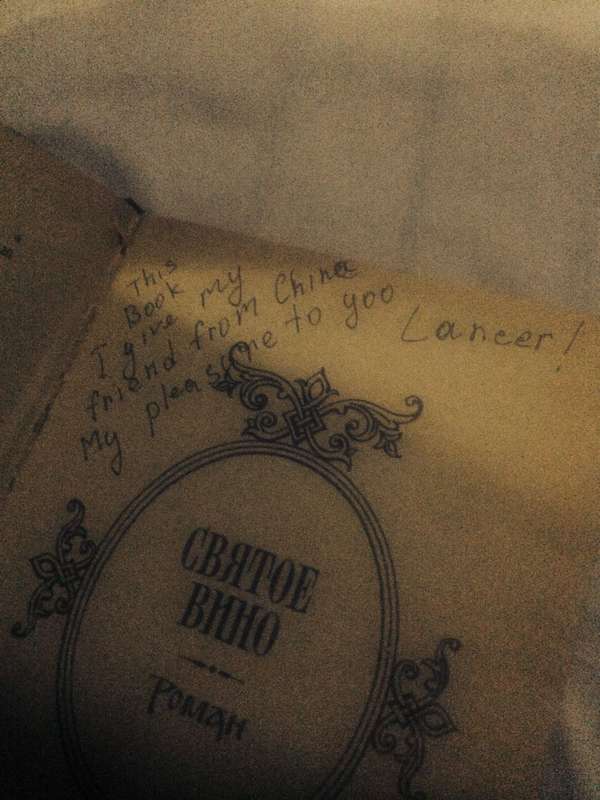 This
Book
I give my
friend from China
My pleasune to yoo Lancer!
СВЯТОЕ
ВИНО
Роман